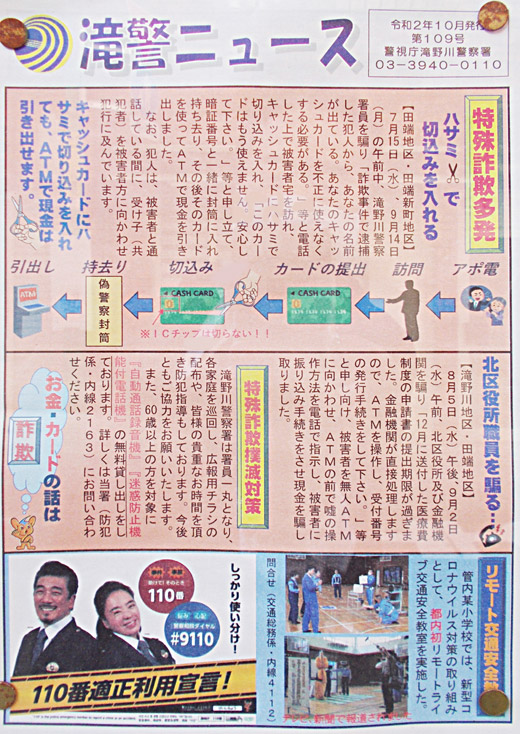 滝警ニュース
令和2年10月発行
第109号
警視庁滝野川警察署
03-3940-0110
特殊詐欺多発
ハサミ✂で
切込みを入れる
【田端地区・田端新町地区】
7月15日(水)、9月14日
(月)の午前中、滝野川警察
署員を騙り「詐欺事件で逮捕
した犯人から、あなたの名前
が出ている。あなたのキャッ
シュカードを不正に使えなく
する必要がある。」等と電話
した上で被害者宅を訪れ、
キャッシュカードにハサミで
切り込みを入れ、「このカー
ドはもう使えません。安心し
て下さい。」等と申し立て、
暗証番号と一緒に封筒に入れ
持ち去り、その後そのカード
を使ってATMで現金を引き
出しました。
なお、犯人は、被害者と通
話している間に、受け子(共
犯者)を被害者方に向かわせ
犯行に及んでいます。
キャッシュカードにハ
サミで切り込みを入れ
ても、ATMで現金は
引き出せます。
アポ電
訪問
カードの提出
切込み
持去り
引出し
CASH CARD
CASH CARD
偽警察封筒
ATM
※ICチップは切らない!!
北区役所職員を騙る…
【滝野川地区・田端地区】
8月5日(水)午後、9月2日
(水)午前、北区役所及び金融機
関を騙り「12月に送付した医療費
制度の申請書の提出期限が過ぎま
した。金融機関が直接処理します
ので、ATMを操作し、受付番号
の発行手続きをして下さい。」等
と申し向け、被害者を無人ATM
に向かわせ、ATMの前で嘘の操
作方法を電話で指示し、被害者に
振り込み手続きをさせ現金を騙し
取りました。
特殊詐欺撲滅対策
滝野川警察署は署員一丸となり、
各家庭を巡回し、広報用チラシの
配布や、皆様の貴重なお時間を頂
き防犯指導もしております。今後
ともご協力をお願いいたします。
また、60歳以上の方を対象に
『自動通話録音機』、『迷惑防止機
能付電話機』の無料貸し出しをし
ております。詳しくは当署(防犯
係・内線2163)にお問い合わ
せください。
お金・カードの話は
詐欺
リモート交通安全教
管内某小学校では、新型コ
ロナウイルス対策の取り組み
として、都内初リモートライ
ブ交通安全教室を実施した。
問合せ(交通総務係・内線4112)
テレビ、新聞で報道されました
しっかり使い分け!
110番
#9110
110番適正利用宣言!